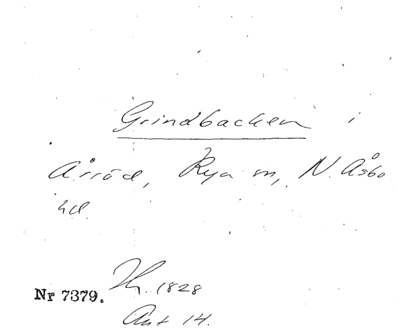 Grindbacken i
Årröd, Rya sn, N. Åsbo
hd.
Nr 7379. Kr. 1828
Akt 14.